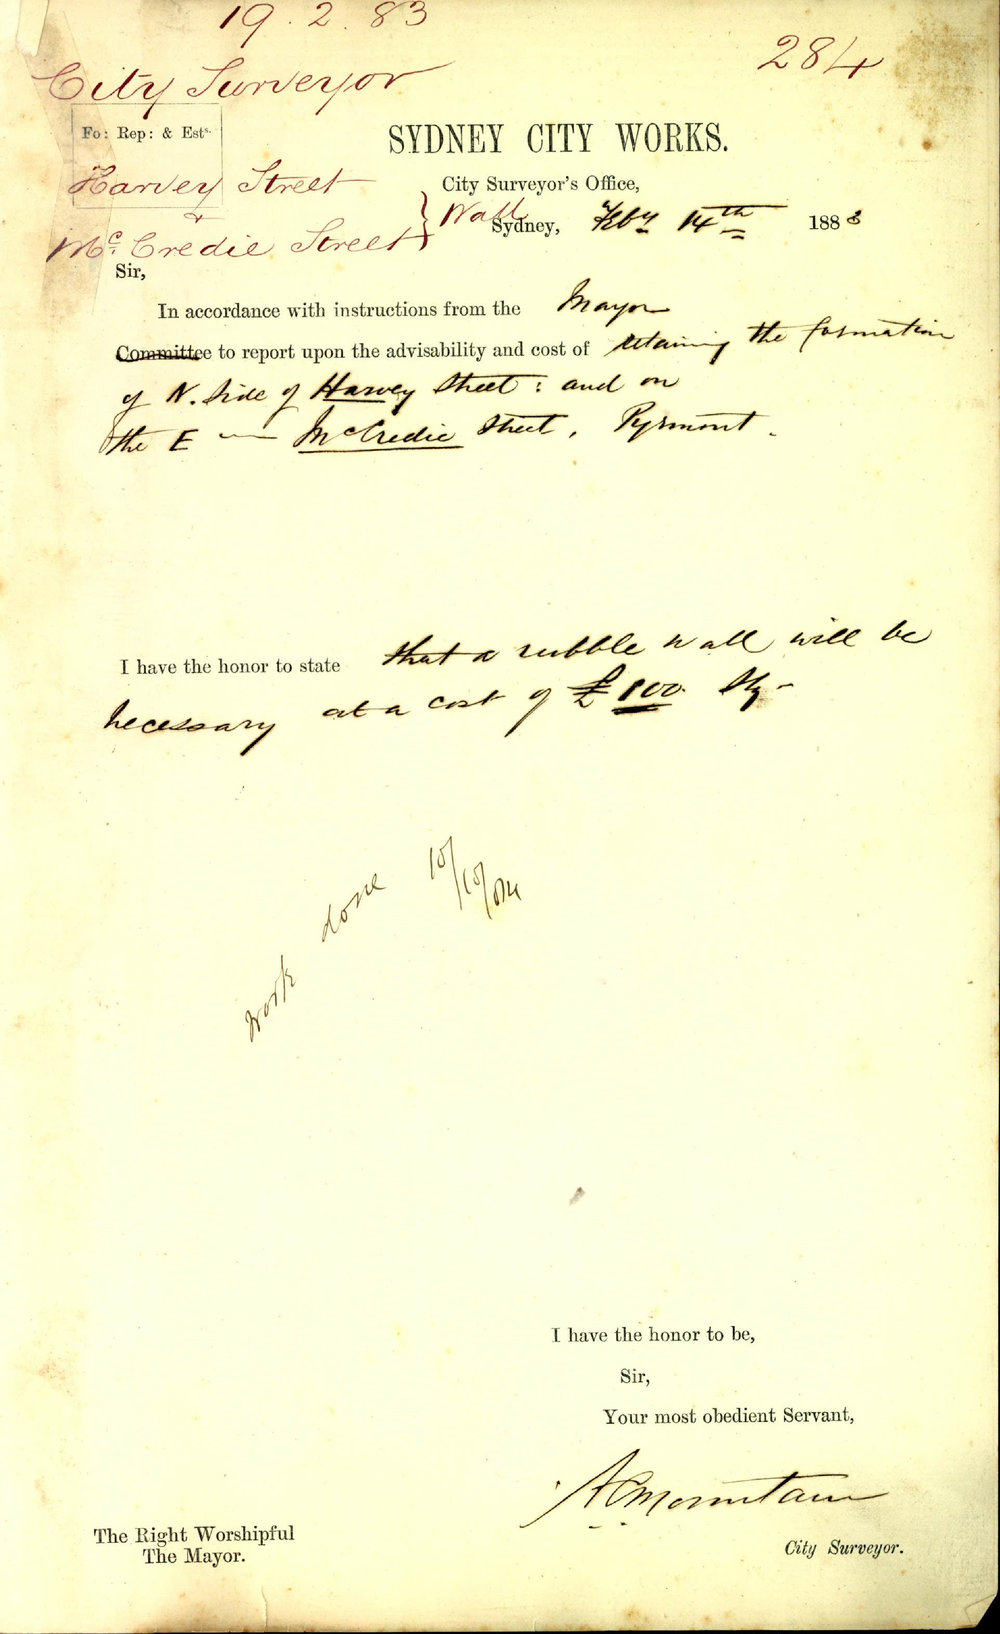 19.2.83
284
City Surveyor
Fo: Rep: & Ests.
SYDNEY CITY WORKS.
Harvey Street
City Surveyor's Office,
&
Mc. Credie Street } Wall
Sydney, Feby 14th 1883
Sir,
In accordance with instructions from the Mayor
Committee to report upon the advisability and cost of retaining the formation
of N. Side of Harvey Street: and on
the E — McCredie Street, Pyrmont.
I have the honor to state that a rubble wall will be
necessary at a cost of £100. Stg-
Work done 10/10/84
I have the honor to be,
Sir,
Your most obedient Servant,
A C Mountain
The Right Worshipful
The Mayor.
City Surveyor.